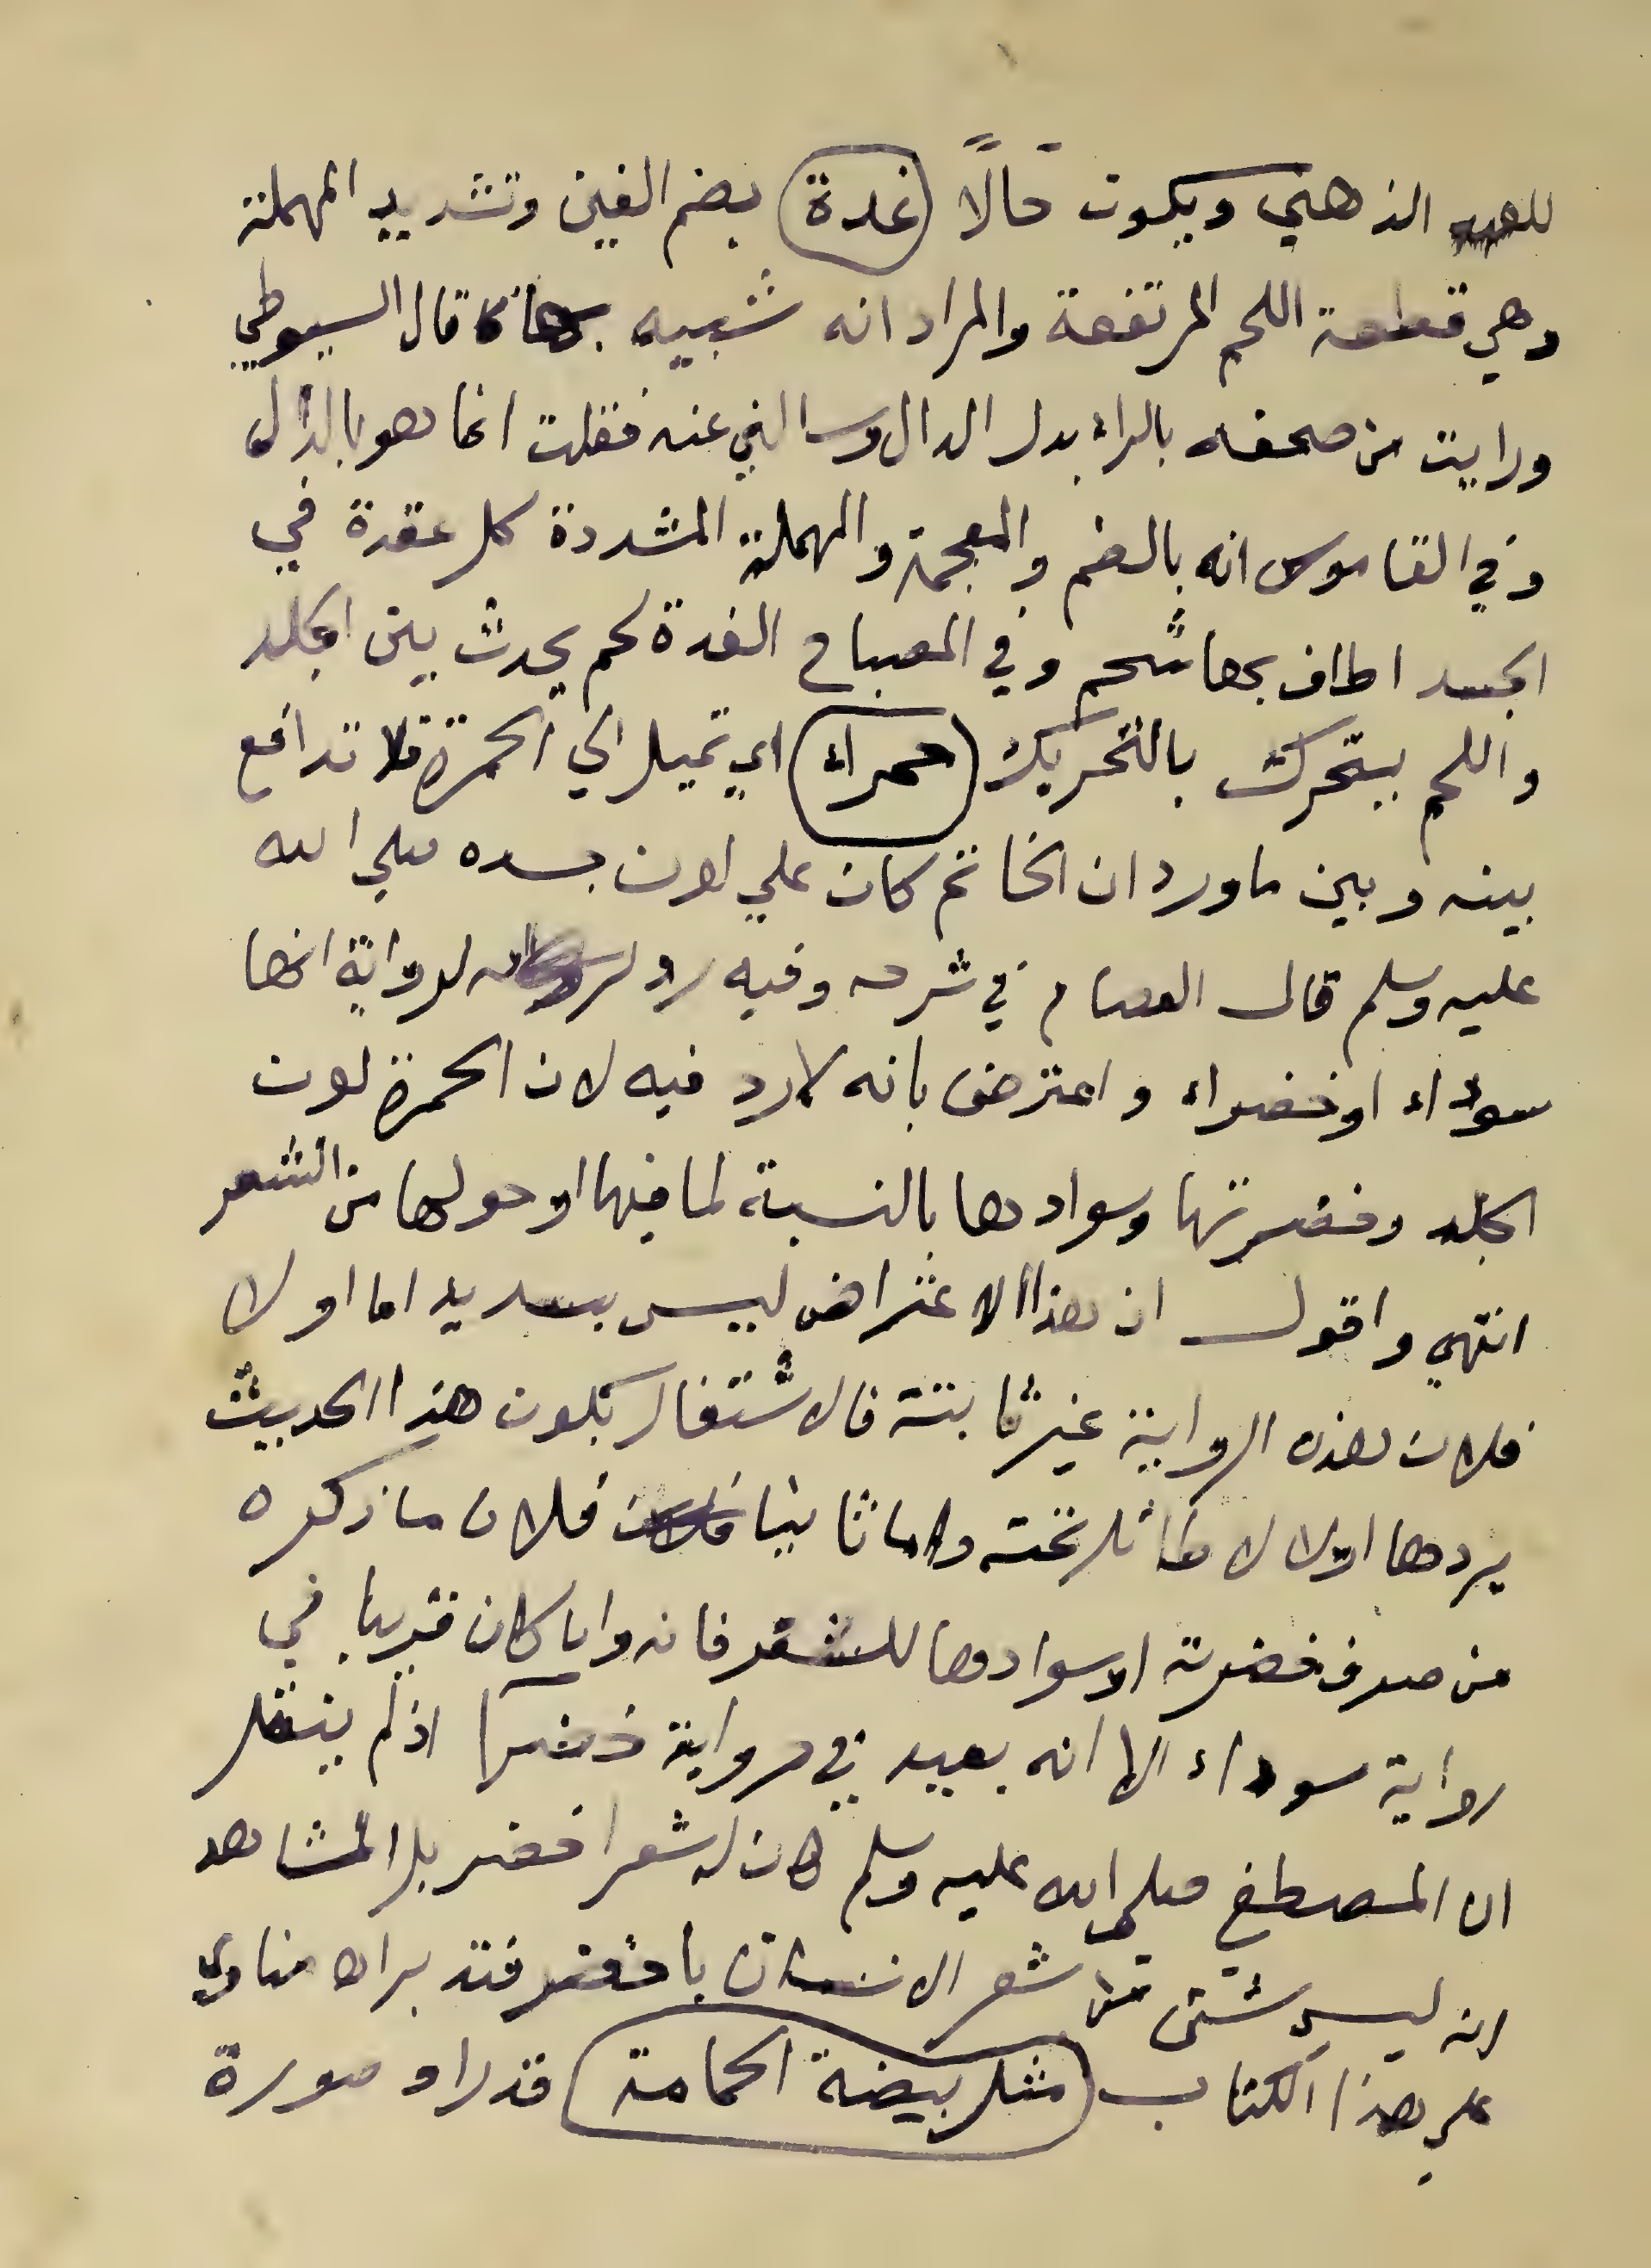 للعهد الذهني ويكون حَالًا (غدة) بضم الغين وتشديد المهملة
وهي قطعة اللحم المرتفعة والمراد انه شبيه بها كما قال السيوطي
ورايت من صحفه بالراء بدل الدال وسالني عنه فقلت انما هو بالدال
وفي القاموس انه بالضم والمعجمة والمهملة المشددة كل عقدة في
الجسد اطاف بها شحم وفي المصباح الغدة لحم يحدث بين الجلد
واللحم يتحرك بالتحريك (حمراء) اي تميل الي الحمرة فلا تدافع
بينه وبين ما ورد ان الخاتم كان علي لون جسده صلي الله
عليه وسلم قال العصام في شرحه وفيه رد لرواية انها
سوداء او خضراء واعترض بانه لا رد فيه لان الحمرة لون
الجلد وخضرتها وسوادها بالنسبة لما فيها او حولها من الشعر
انتهي واقول ان هذا الاعتراض ليس بسديد اما اولا
فلان هذه الرواية غير ثابتة فالاشتغال بكون هذا الحديث
يردها اولا لا طائل تحته واما ثانيا فلان ما ذكره
من صرف خضرته او سوادها للشعر فانه وان كان قريبا في
رواية سوداء الا انه بعيد في رواية خضرا اذ لم ينقل
ان المصطفي صلي الله عليه وسلم كان له شعر اخضر بل المشاهد
انه ليس شئ من شعر الانسان باخضر فتدبر اه مناوي
علي هذا الكتاب (مثل بيضة الحمامة) قدرا وصورة